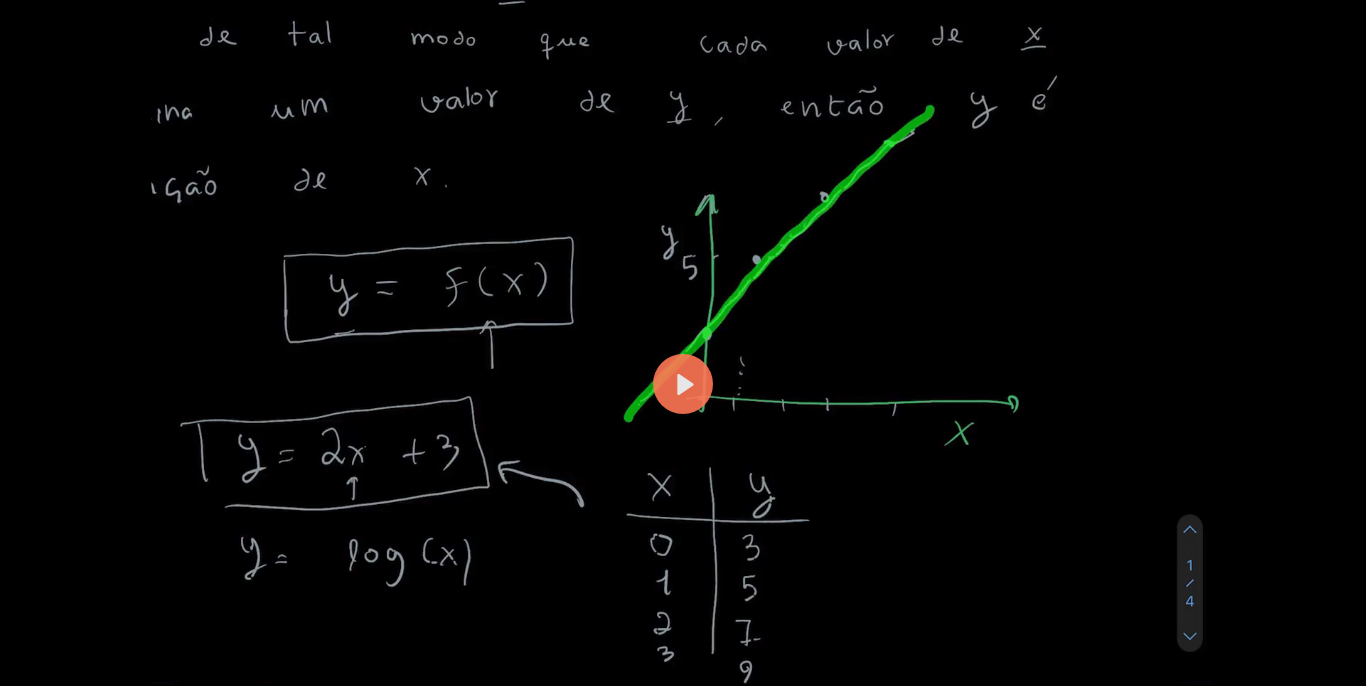 de tal modo que cada valor de x
ina um valor de y, então y é
ição de x.
y = f(x)
y = 2x + 3
y = log(x)
y
5
x
x y
0 3
1 5
2 7
3 9
1
/
4